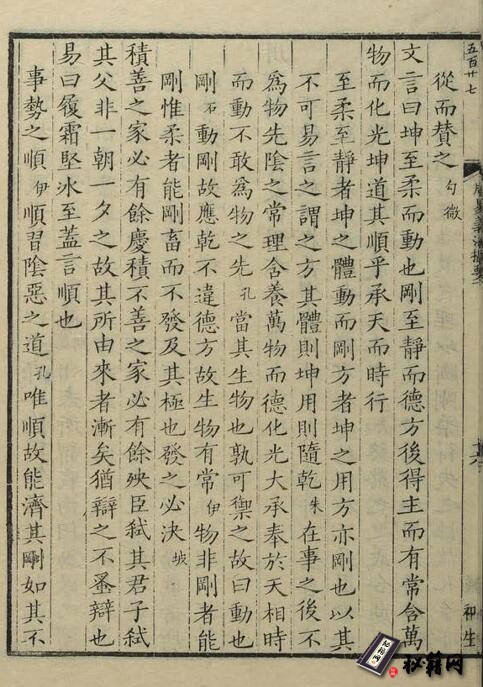 五百廿七
從而贊之勾微
文言曰坤至柔而動也剛至靜而德方後得主而有常含萬
物而化光坤道其順乎承天而時行
至柔至靜者坤之體動而剛方者坤之用方亦剛也以其
不可易言之謂之方其體則坤用則隨乾朱在事之後不
爲物先陰之常理含養萬物而德化光大承奉於天相時
而動不敢爲物之先孔當其生物也孰可禦之故曰動也
剛石動剛故應乾不違德方故生物有常伊物非剛者能
剛惟柔者能剛畜而不發及其極也發之必决坡
積善之家必有餘慶積不善之家必有餘殃臣弒其君子弒
其父非一朝一夕之故其所由來者漸矣猶辯之不蚤辯也
易曰履霜堅氷至蓋言順也
事勢之順伊順習陰惡之道孔唯順故能濟其剛如其不
和生
秘籍网